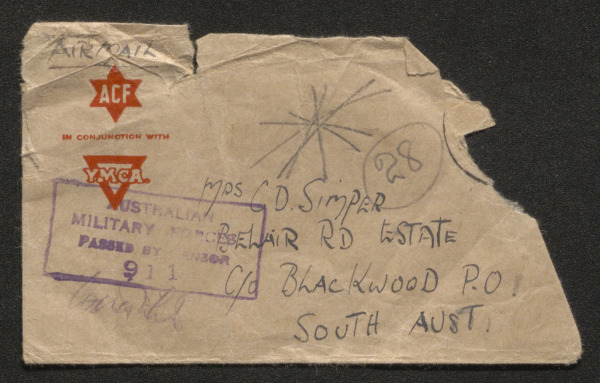 AIRMAIL
ACF
IN CONJUNCTION WITH
Y.M.C.A.
28
MRS C D. SIMPER
AUSTRALIAN
MILITARY FORCES
BELAIR RD ESTATE
PASSED BY CENSOR
911
C/o BLACKWOOD P.O.
SOUTH AUST.